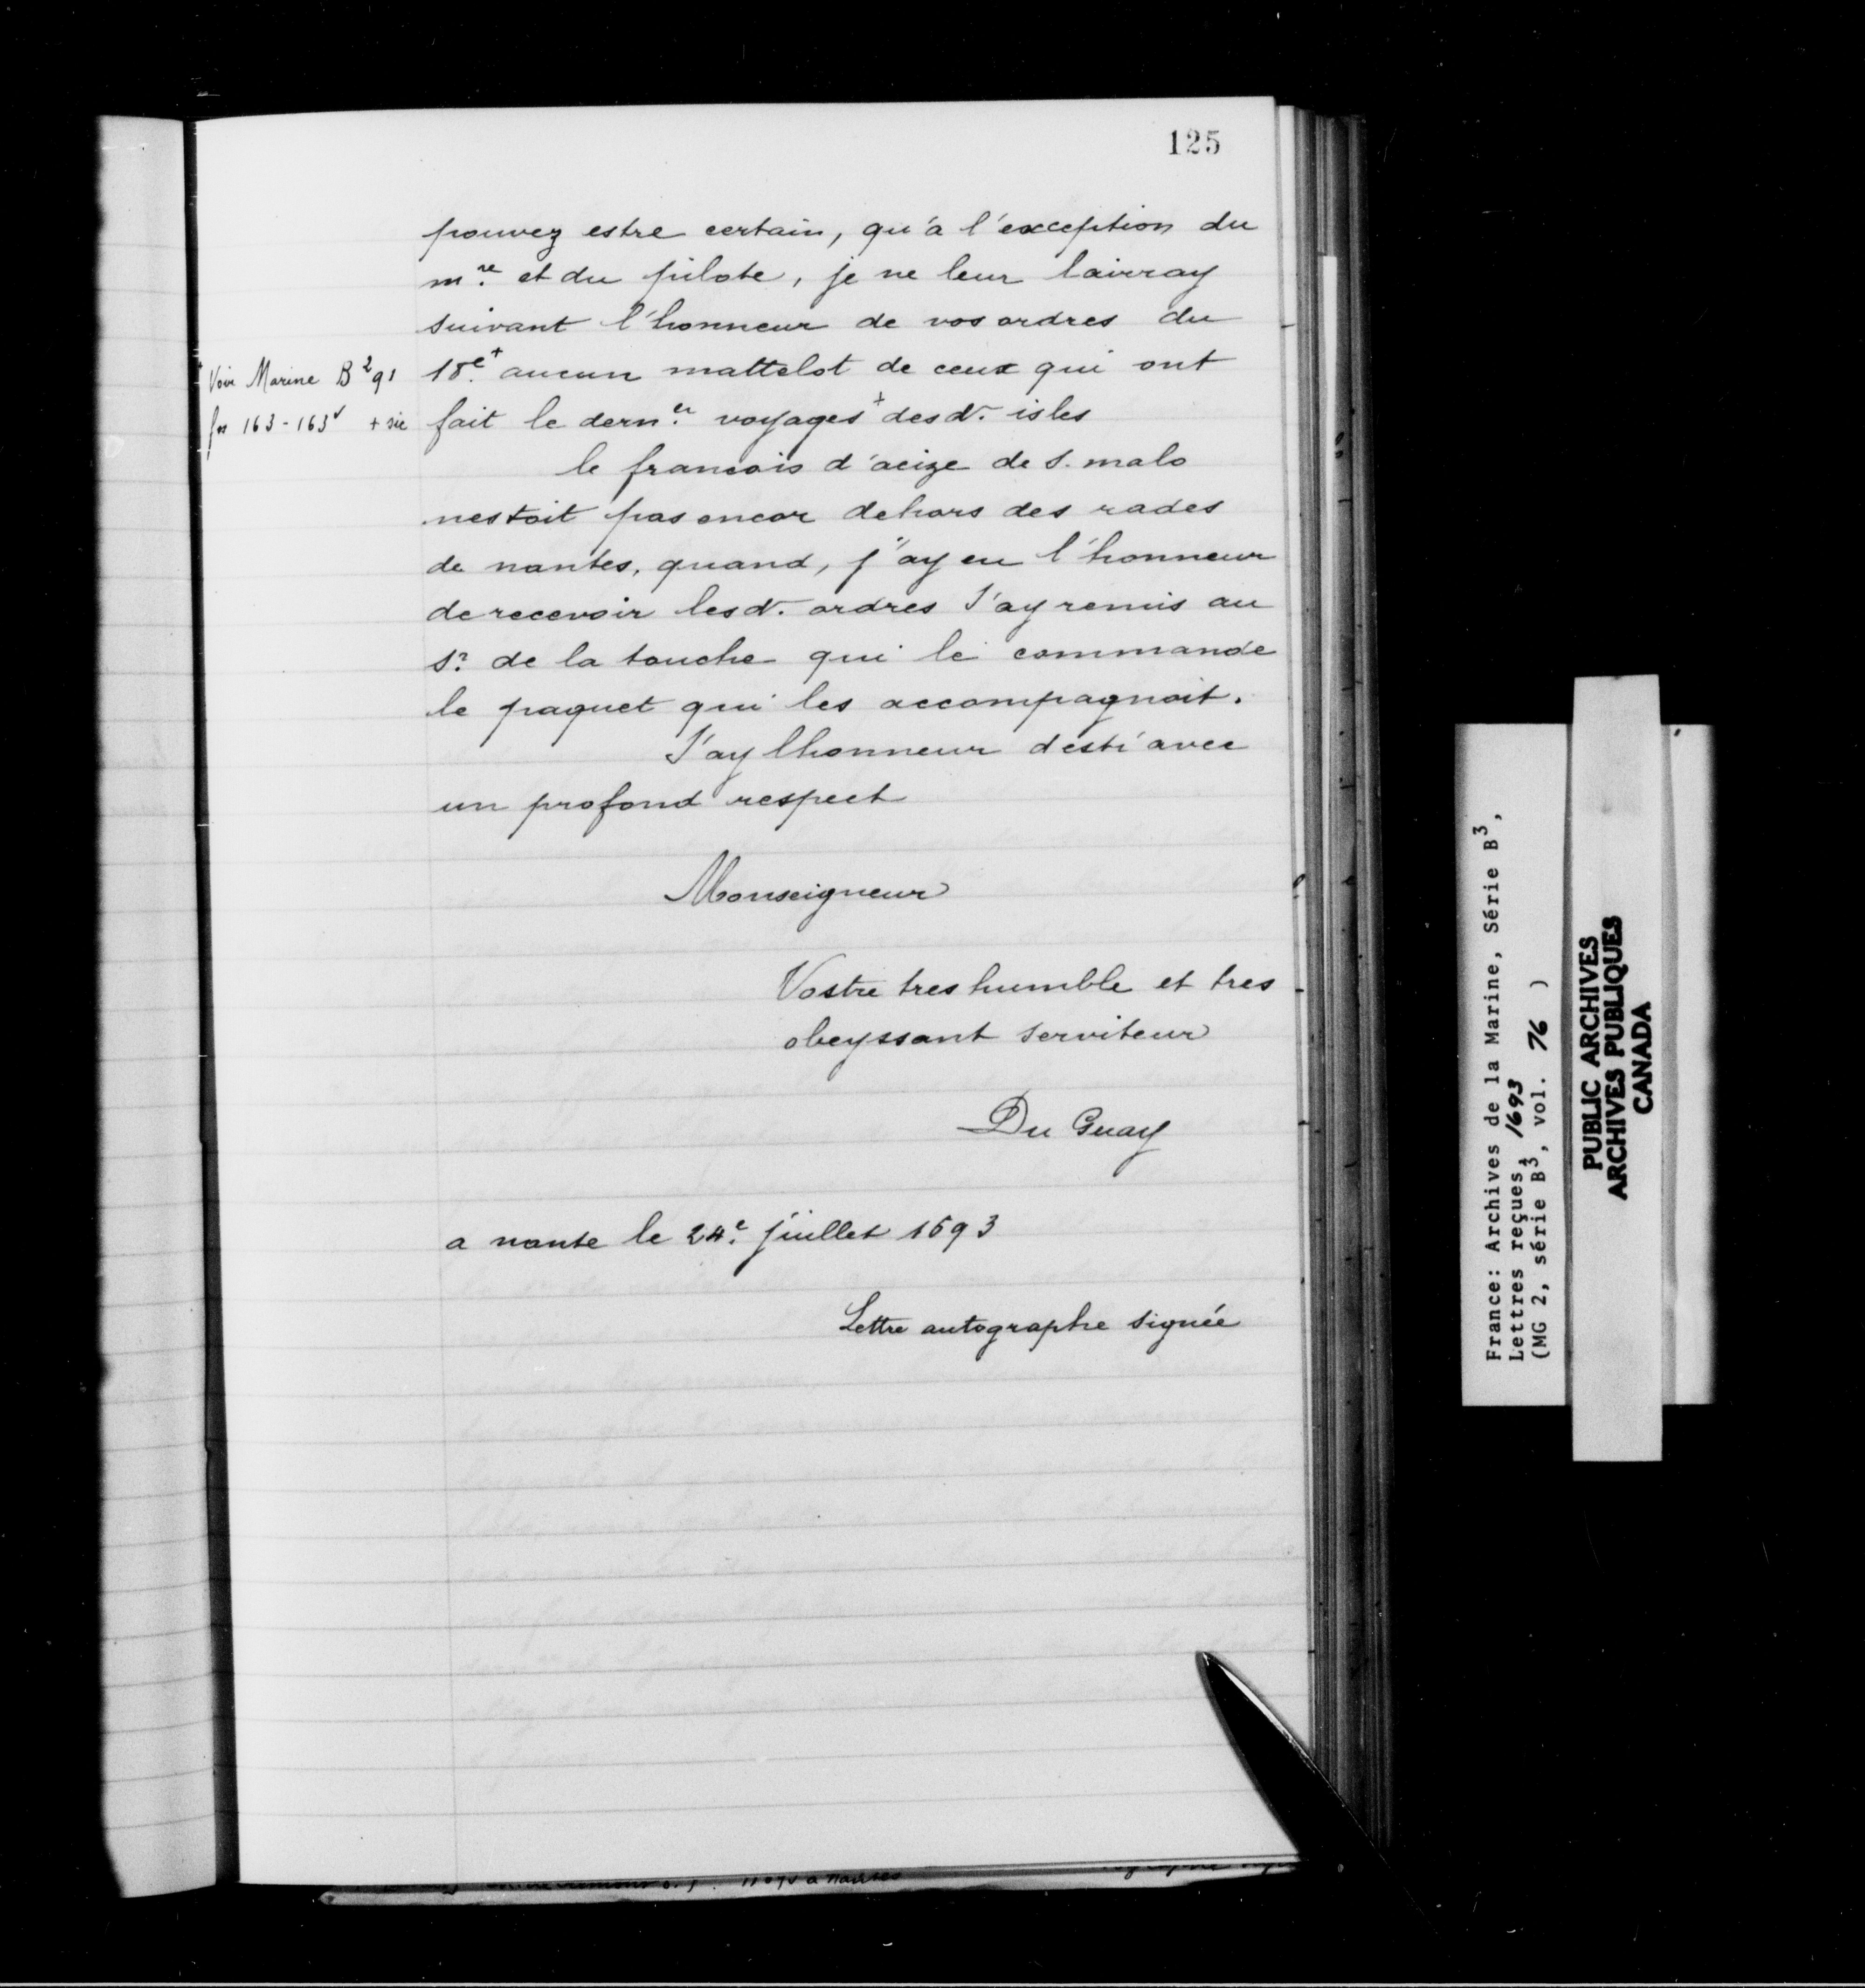 125
pouvez estre certain, qu'à l'exception du
mre. et du pilote, je ne leur lairray
suivant l'honneur de vos ordres du
18e.+ aucun mattelot de ceux qui ont
fait le dern.er voyages+ desd. isles
+ Voir Marine B2 91
fos 163-163v + sic
le francois d'aeize de S. malo
nestoit pas encor dehors des rades
de nantes, quand, j'ay eu l'honneur
de recevoir lesd. ordres J'ay remis au
Sr. de la touche qui le commande
le paquet qui les accompagnoit.
J'ay lhonneur destré avec
un profond respect
Monseigneur
Vostre tres humble et tres
obeyssant serviteur
Du Guay
a nante le 24e. juillet 1693
Lettre autographe signée
France: Archives de la Marine, Série B3,
Lettres reçues, 1693
(MG 2, série B3, vol. 76 )
PUBLIC ARCHIVES
ARCHIVES PUBLIQUES
CANADA